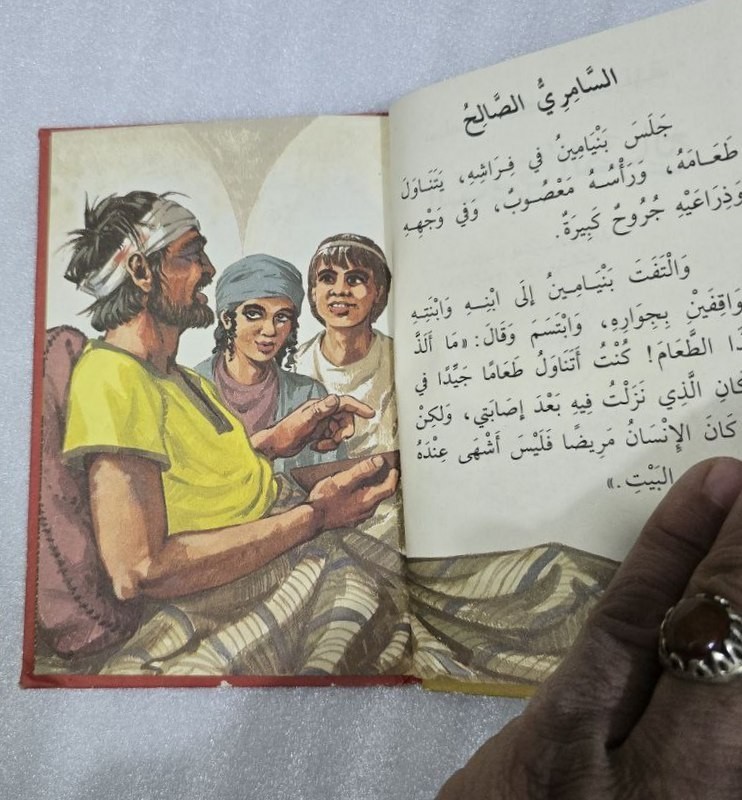 السَّامِرِيُّ الصَّالِحُ
جَلَسَ بَنْيَامِينُ في فِرَاشِهِ، يَتَنَاوَلَ
طَعَـامَهُ، وَرَأْسُـهُ مَعْصُوبٌ، وَفي وَجْهِـهِ
وَذِرَاعَيْهِ جُرُوحٌ كَبِيرَةٌ.
وَالْتَفَتَ بَنْيَـامِـينُ إلَى ابْنِـهِ وَابْنَتِـهِ
وَاقِفَيْنِ بِجِوَارِهِ، وَابْتَسَمَ وَقَالَ: «مَا أَلَذَّ
الطَّعَامَ! كُنْتُ أَتَنَاوَلُ طَعَامًا جَيِّدًا في
الَّذِي نَزَلْتُ فِيهِ بَعْدَ إصَابَتي، وَلكِنْ
كَانَ الإنْسَانُ مَرِيضًا فَلَيْسَ أَشْهَى عِنْدَهُ
البَيْتِ.»